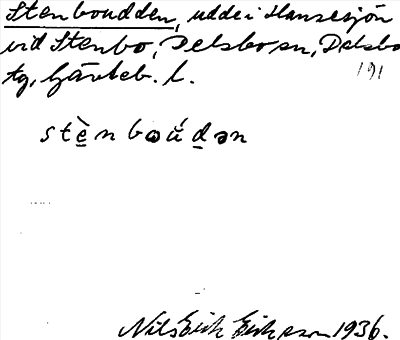 Stenboudden, udde i Hansesjön
vid Stenbo, Delsbo sn, Delsbo
tg, Gävleb. l. 191
stèn boúdən
Nils Erik Erikson 1936.